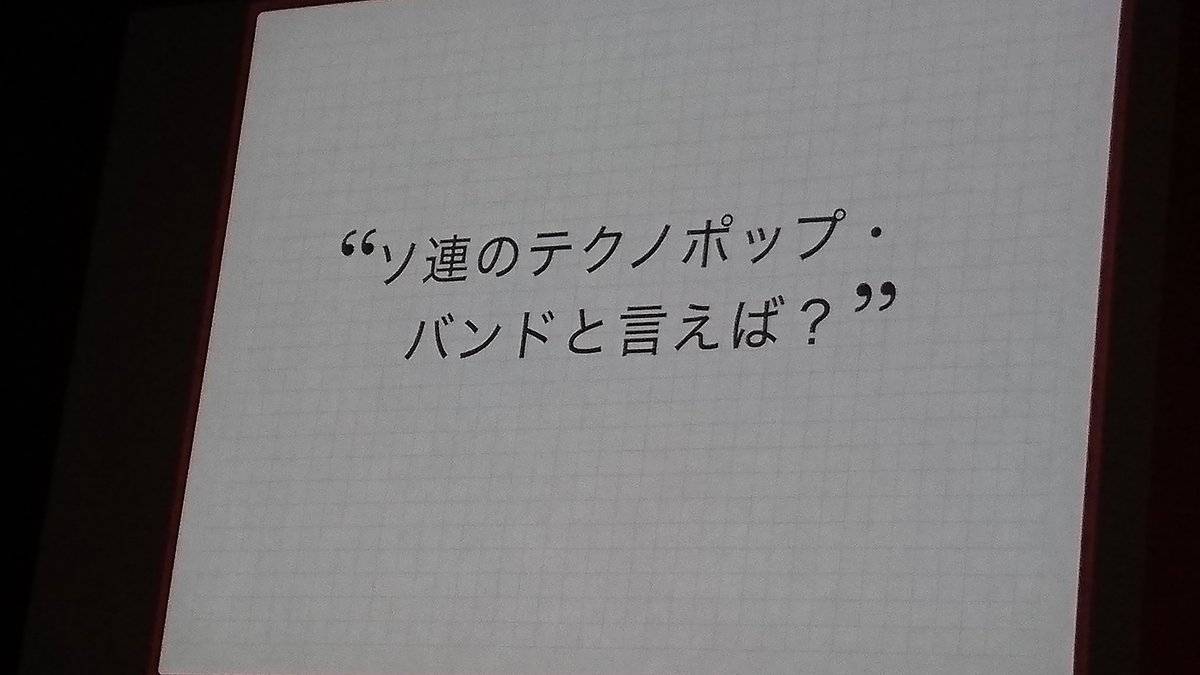 “ソ連のテクノポップ・
バンドと言えば？”